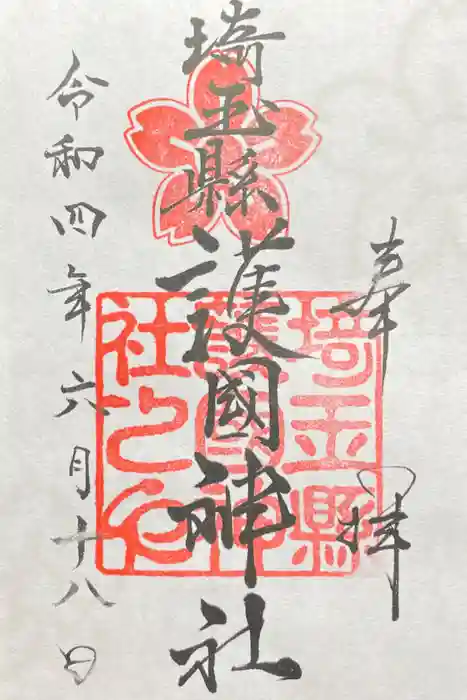 奉拝
埼玉縣護國神社
令和四年六月十八日
埼玉縣
護國神
社之印